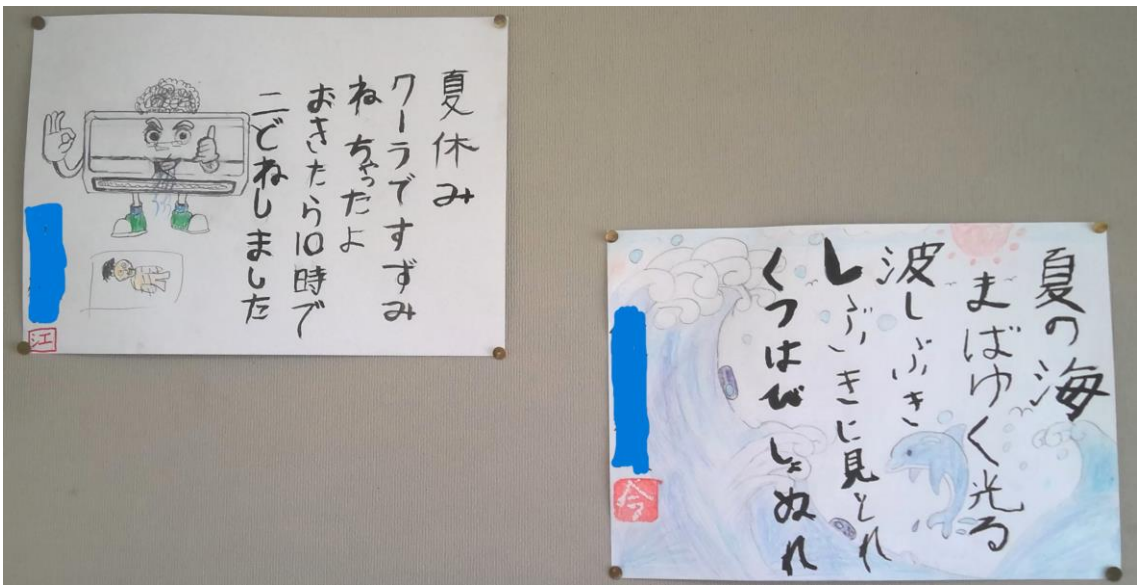 夏休み
クーラですずみ
ねちゃったよ
おきたら10時で
二どねしました
江
夏の海
まばゆく光る
波しぶき
しぶきに見とれ
くつはびしょぬれ